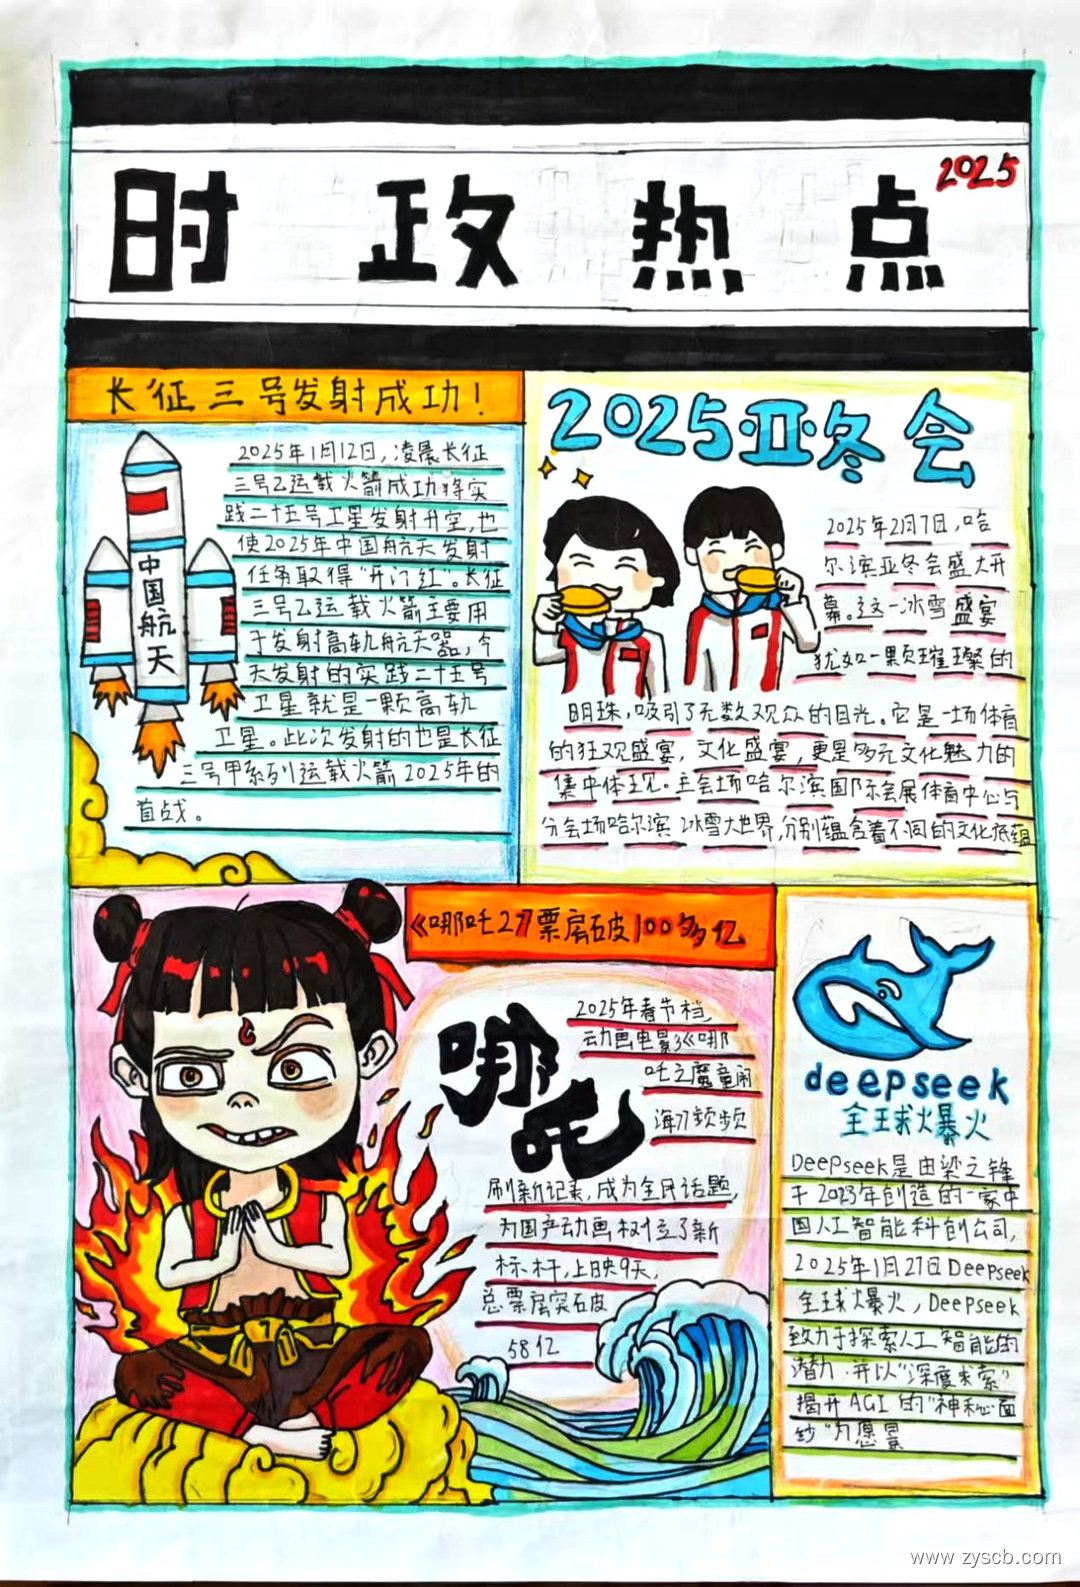 时政热点
2025
长征三号发射成功！
2025年1月12日，凌晨长征
三号乙运载火箭成功将实
践二十五号卫星发射升空，也
使2025年中国航天发射
任务取得“开门红”。长征
三号乙运载火箭主要用
于发射高轨航天器，今
天发射的实践二十五号
卫星就是一颗高轨
卫星。此次发射的也是长征
三号甲系列运载火箭2025年的
首战。
中国航天
2025亚冬会
2025年2月7日，哈
尔滨亚冬会盛大开
幕。这一冰雪盛宴
犹如一颗璀璨的
明珠，吸引了无数观众的目光。它是一场体育
的狂观盛宴，文化盛宴，更是多元文化魅力的
集中体现。主会场哈尔滨国际会展体育中心与
分会场哈尔滨冰雪大世界，分别蕴含着不同的文化底蕴
《哪吒2》票房破100多亿
哪吒
2025年春节档，
动画电影《哪
吒之魔童闹
海》频频
刷新记录，成为全民话题，
为国产动画树立了新
标杆，上映9天，
总票房突破
58亿
deepseek
全球爆火
Deepseek是由梁之锋
于2023年创造的一家中
国人工智能科创公司，
2025年1月27日Deepseek
全球爆火，Deepseek
致力于探索人工智能的
潜力，并以“深度求索”
揭开AGI的“神秘面
纱”为愿景
www.zyscb.com